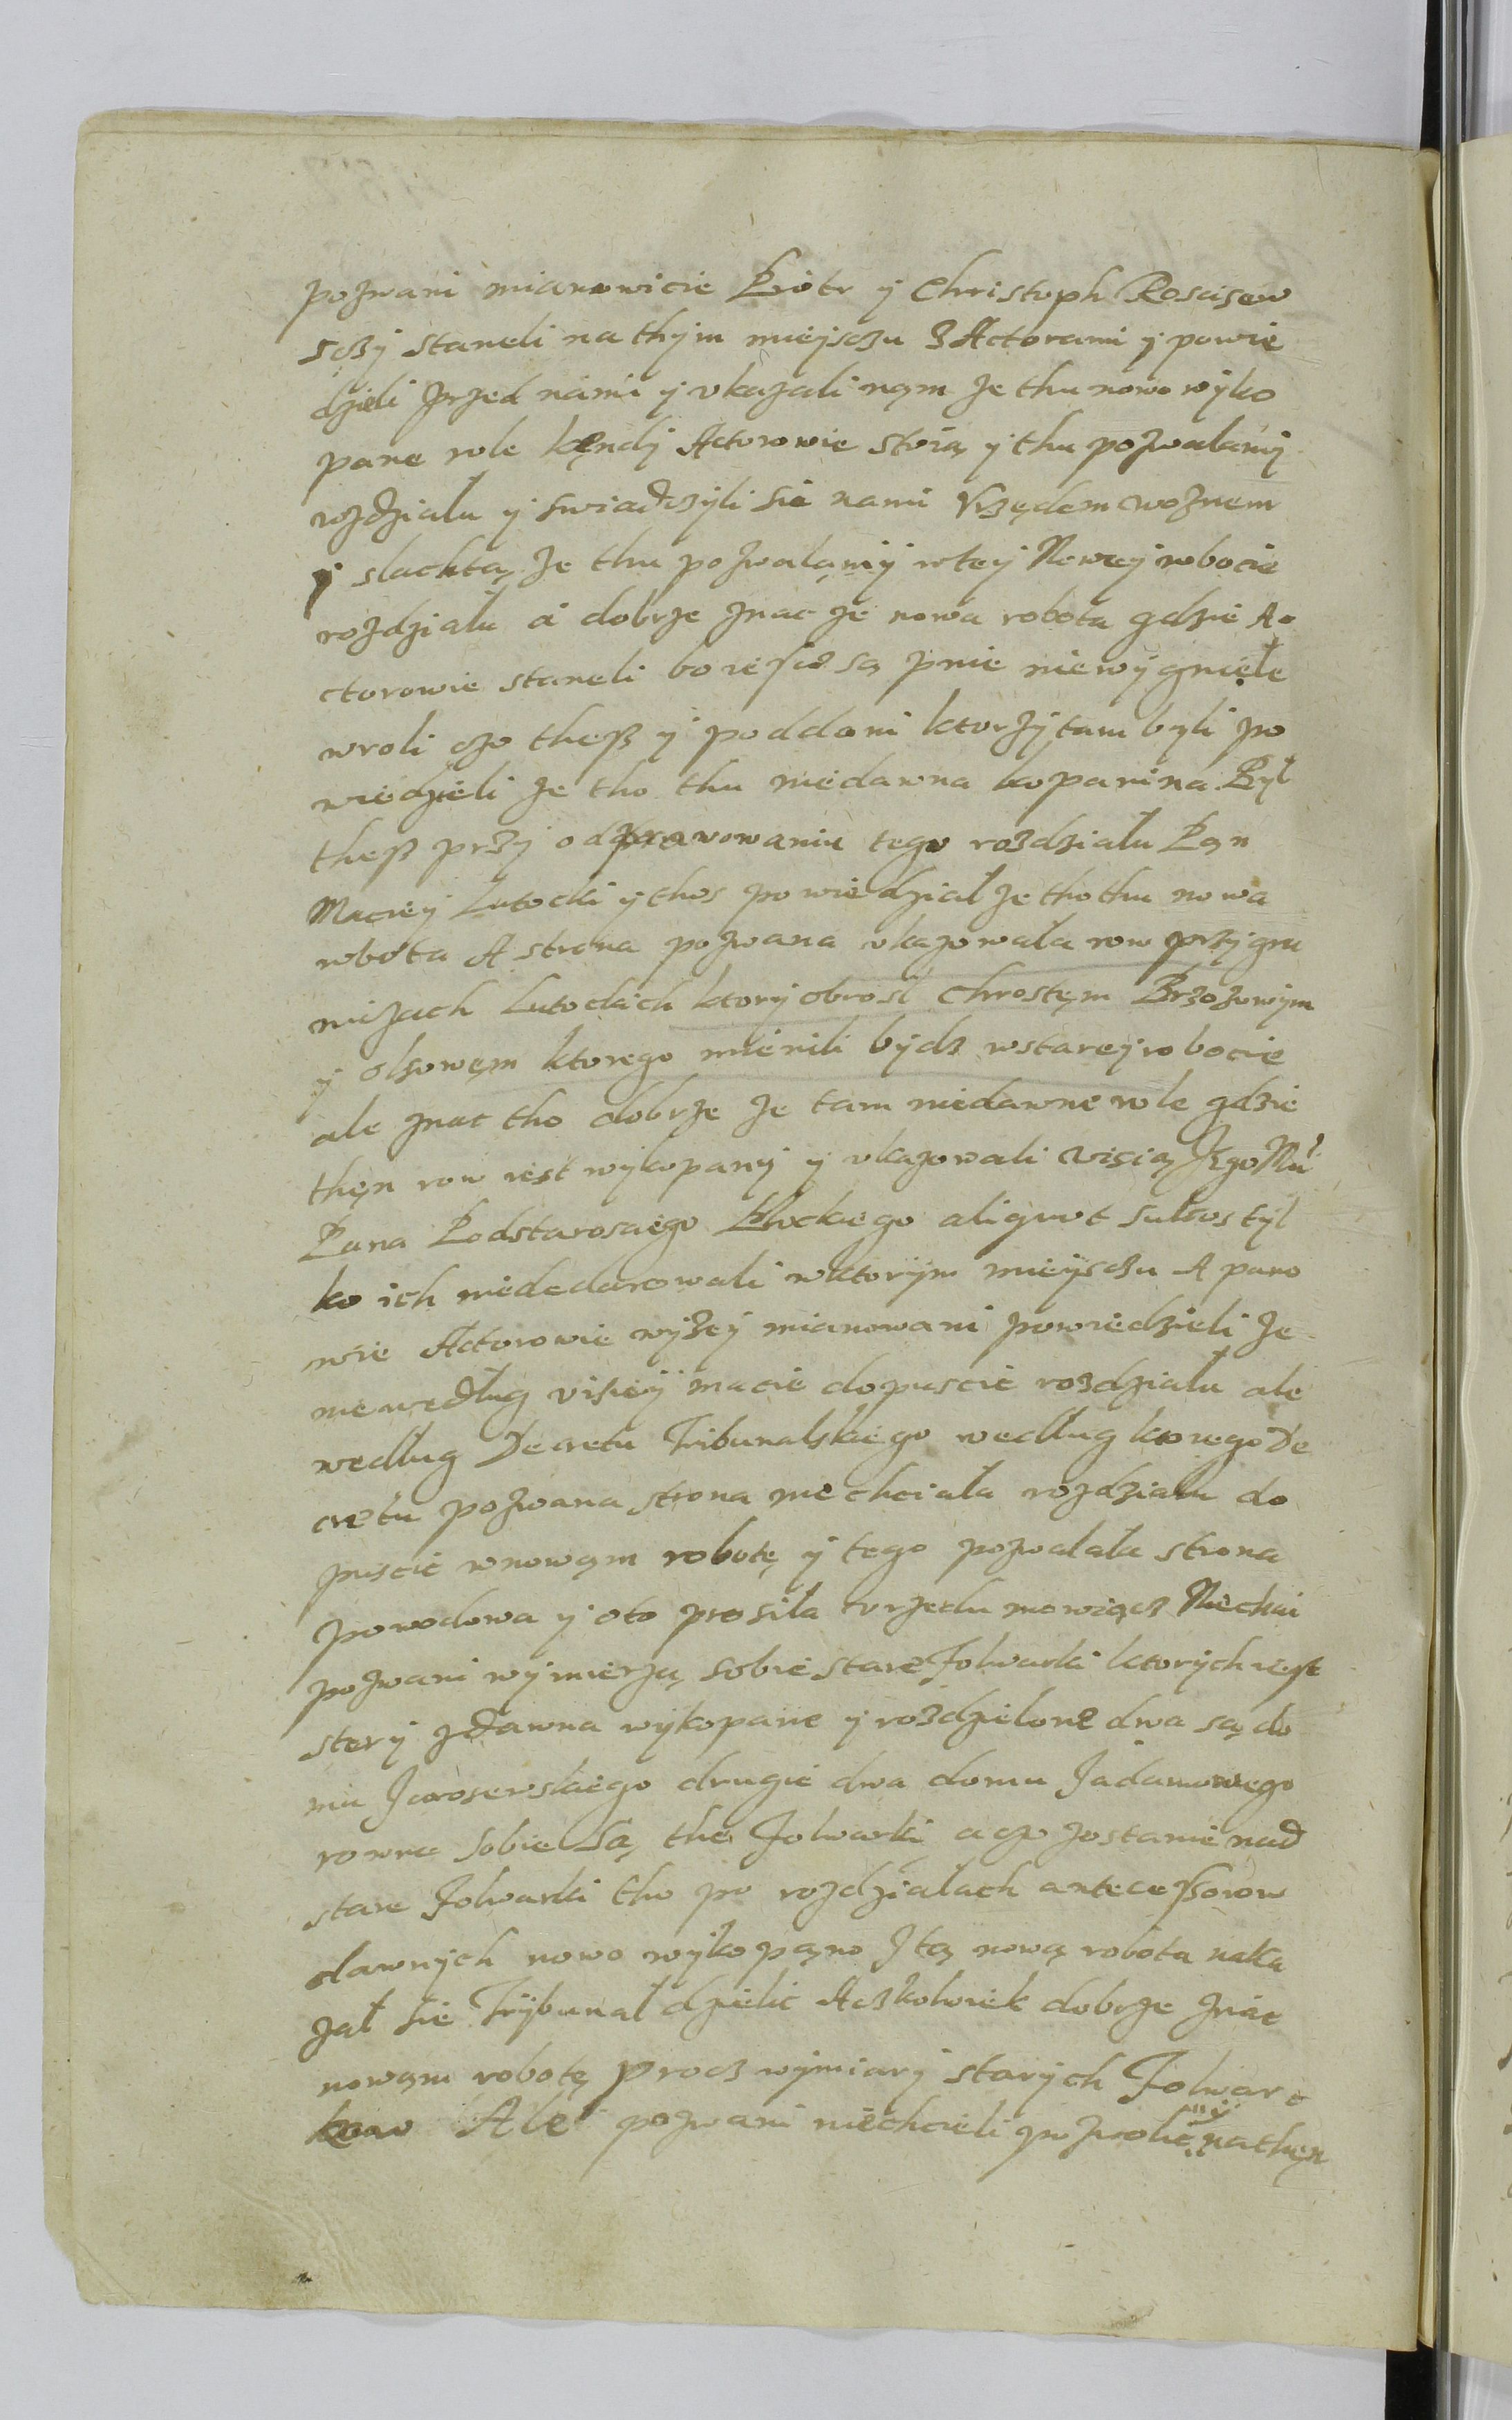 pozwani mianowicie Piotr y Christoph Roscisew
sczy staneli na thym mieysczu z Actorami y powie
dzieli przed nami y vkazali nąm że thu nowo wyko
pane role kędy Actorowie stoią y thu pozwalamy
rozdziału y swiadczyli sie nami Vrzędem woznem
y slachtą że thu pozwalamy w tey Nowey robocie
rozdziału a dobrze znac że nowa robota gdzie A
ctorowie staneli bo iescze są pnie niewygniełe
w roli czo thesz y poddani ktorzy tam byli po
wiedzieli że tho thu niedawna kopanina Był
thesz przy odprawowaniu tego rozdziału Pąn
Maciey Lutocki y thos powiedział że tho thu nowa
robota A strona pozwana vkazowała row przy gra
niczach Lutockich ktory obrosł chrostęm Brzozowym
y olsowęm ktorego mienili bydz w starey robocie
ale znac tho dobrze że tam niedawne role gdzie
thęn row iest wykopany y vkazowali visią Jego Mci
Pana Podstarosciego Płockiego aliquot sulcos tyl
ko ich niededarowali w ktorym mieysczu A pano
wie Actorowie wyżey mianowani powiedzieli że
nie według visiey macie dopuscic rozdziału ale
według Decretu Tribunalskiego według ktorego De
cretu pozwana strona nie chciała rozdziału do
puscic w nowąm robotę y tego pozwalała strona
powodowa y oto prosiła vrzedu mowiącz Niechai
pozwani wymierzą sobie stare folwarki ktorych iest
stery zdawna wykopane y rozdzielone dwa są do
mu Jaroserskiego drugie dwa domu Jadamowego
rowne sobie są the folwarki a czo zostanie nad
stare folwarki tho po rozdziałach antecessorow
dawnych nowo wykopąno y tą nową robota naka
zał sie Trybunał dzielic Aczkolwiek dobrze znac
nowąm robotę procz wymiary starych folwar
kow Ale pozwani niechcieli pozwolic na thęn